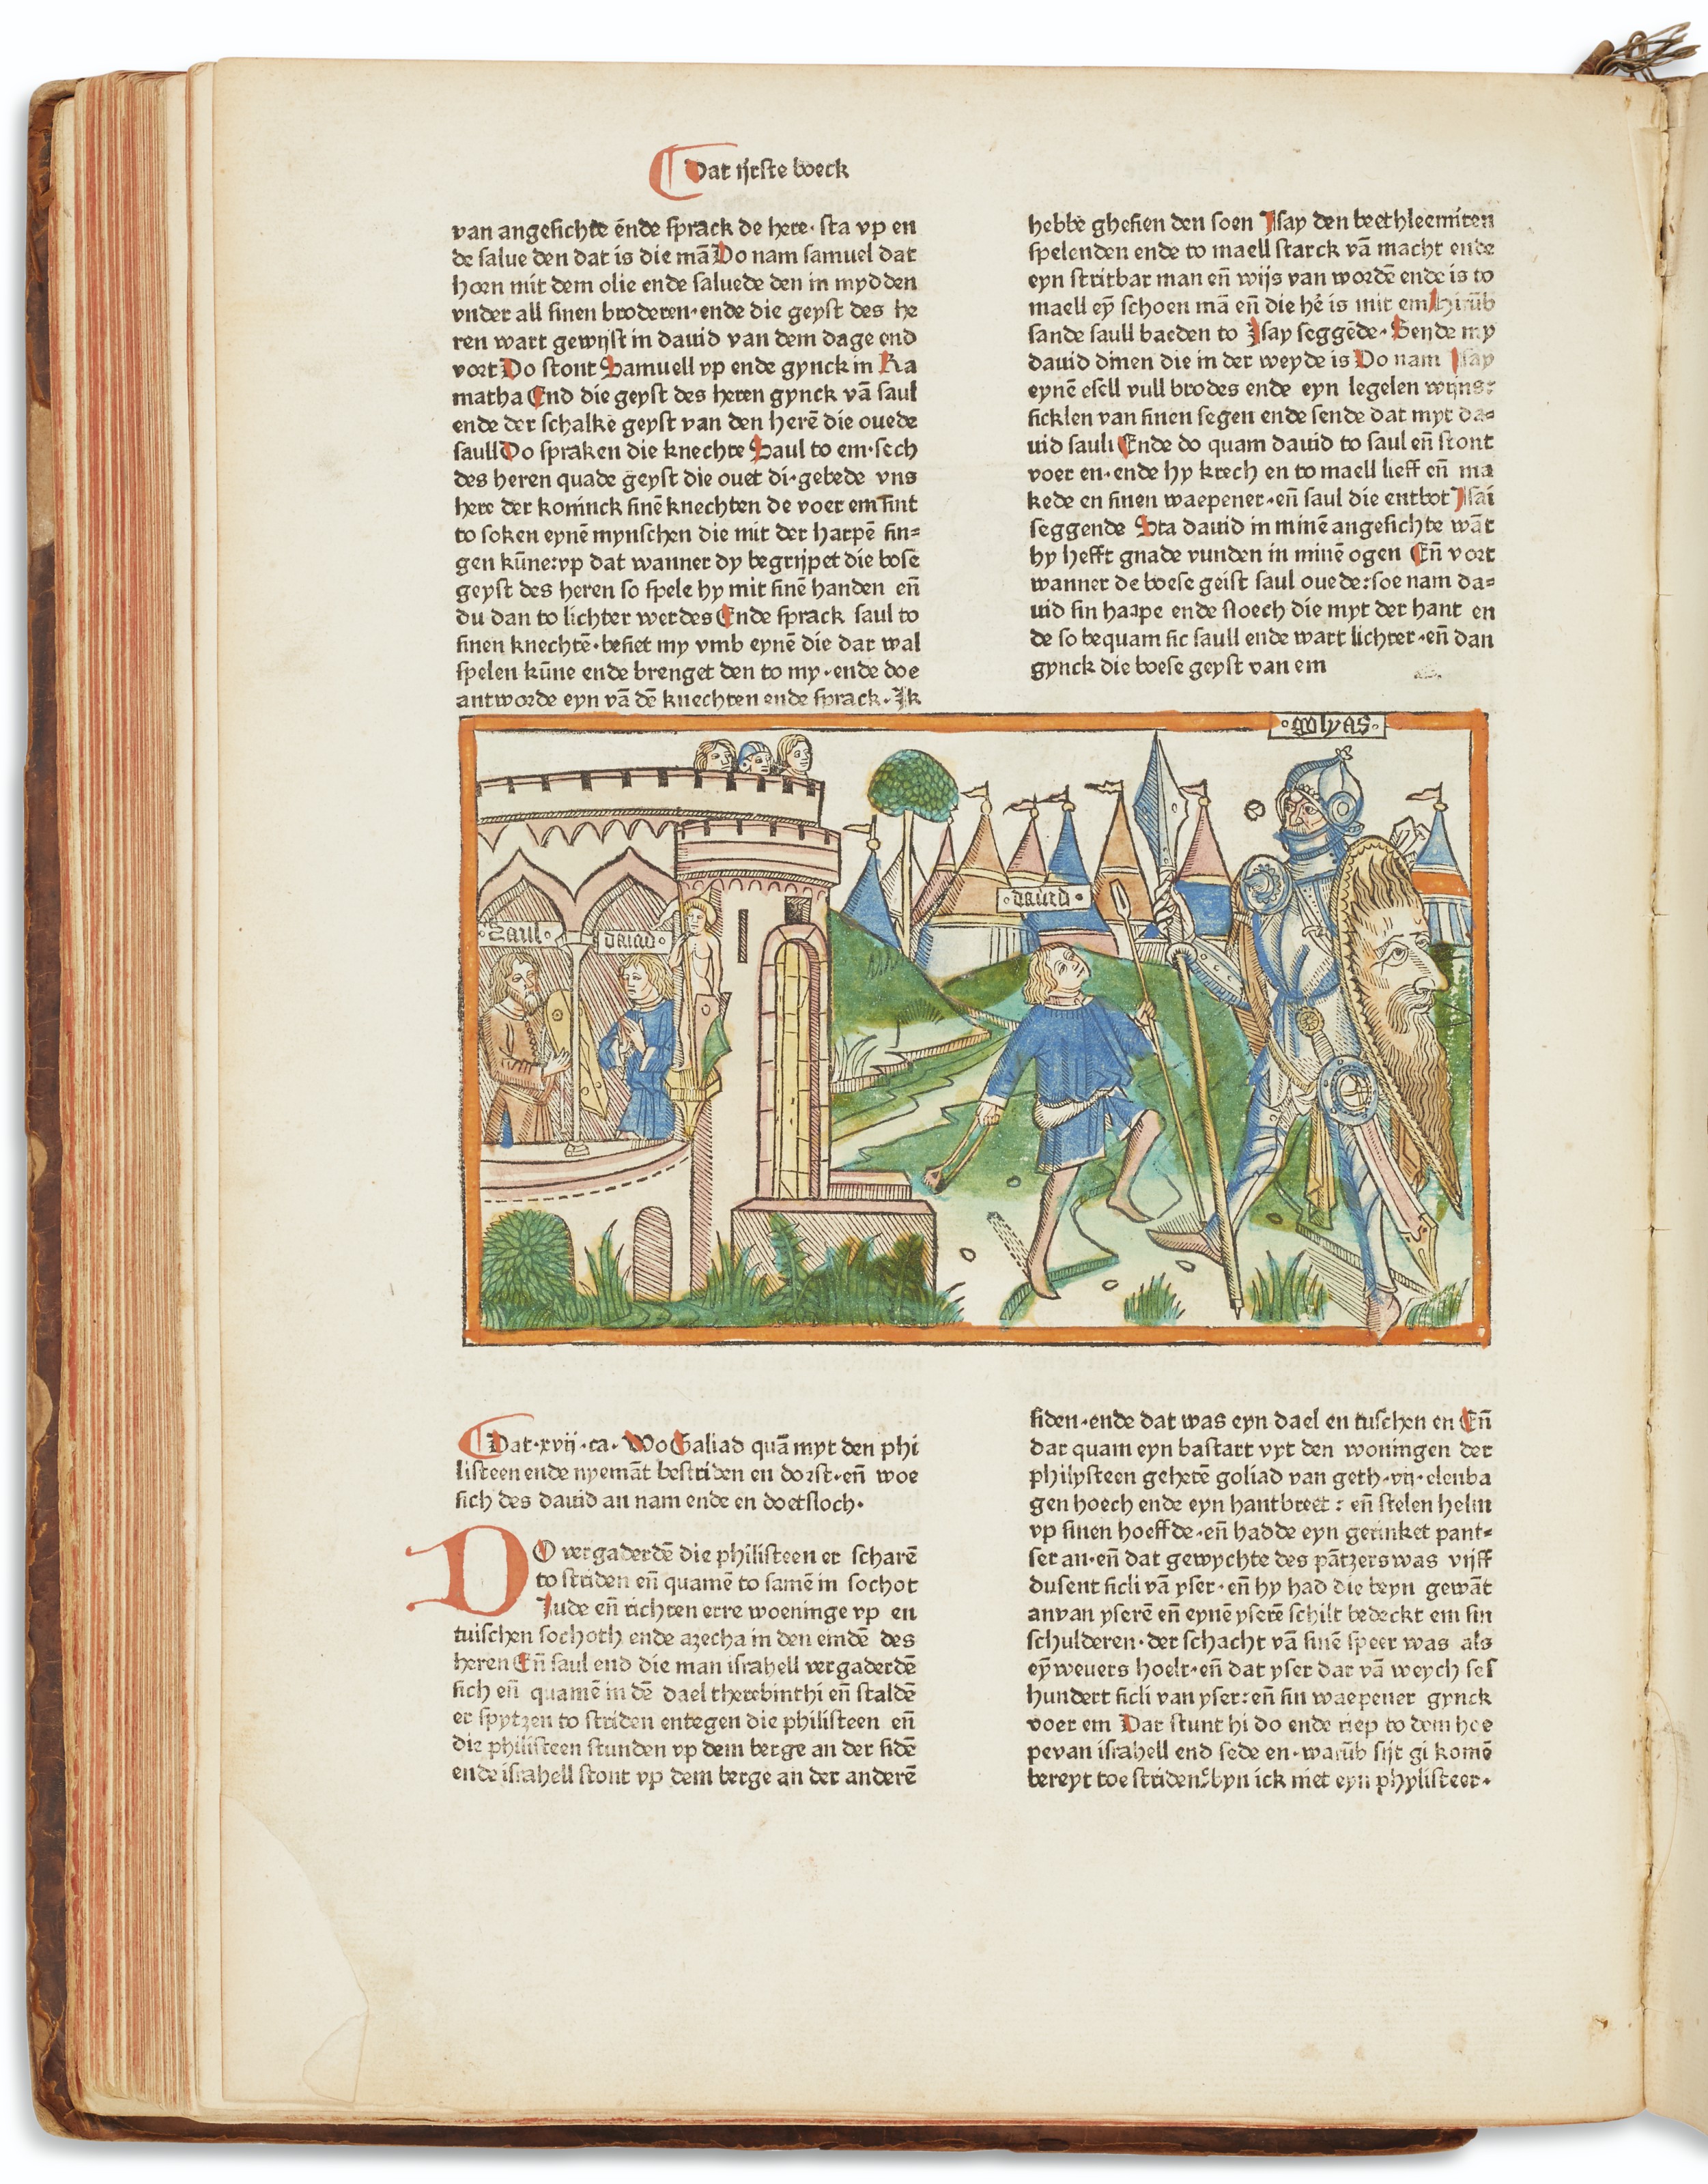 Dat ijrste boeck
van angesichte ende sprack de here· sta vp en
de salue den dat is die mā Do nam samuel dat
horn mit dem olie ende saluede den in mydden
vnder all sinen broderen· ende die geyst des he
ren wart gewijst in dauid van dem dage end
vort Do stont Samuell vp ende gynck in Ra
matha End die geyst des heren gynck vā saul
ende der schalke geyst van den herē die ouede
saull Do spraken die knechte Saul to em· sech
des heren quade geyst die ouet di· gebede vns
here der koninck sinē knechten de voer em sint
to soken eynē mynschen die mit der harpē sin=
gen kūne: vp dat wanner dy begrijpet die bose
geyst des heren so spele hy mit sinē handen en̄
du dan to lichter werdes Ende sprack saul to
sinen knechtē· besiet my vmb eynē die dar wal
spelen kūne ende brenget den to my· ende doe
antworde eyn vā dē knechten ende sprack· Ik
hebbe ghesien den soen Isay den beethleemiten
spelenden ende to maell starck vā macht ende
eyn stritbar man en̄ wijs van wordē ende is to
maell eȳ schoen mā en̄ die hē is mit em Hirūb
sande saull baeden to Isay seggēde· Sende my
dauid dinen die in der weyde is Do nam Isay
eynē esell vull brodes ende eyn legelen wijns:
sicklen van sinen segen ende sende dat myt da=
uid sauli Ende do quam dauid to saul en̄ stont
voer en· ende hy krech en to maell lieff en̄ ma
kede en sinen waepener· en̄ saul die entbot Isai
seggende Sta dauid in minē angesichte wāt
hy hefft gnade vunden in minē ogen En̄ vort
wanner de boese geist saul ouede: soe nam da=
uid sin harpe ende sloech die myt der hant en
de so bequam sic saull ende wart lichter· en̄ dan
gynck die boese geyst van em
·golyas·
·dauid·
·Saul·
dauid·
Dat·xvij·ca· Wo Galiad quā myt den phi
listeen ende nyemāt bestriden en dorst· en̄ woe
sich des dauid an nam ende en doetsloch·
DO vergaderdē die philisteen er scharē
to striden en̄ quamē to samē in sochot
Jude en̄ richten erre woeninge vp en
tuischen sochoth ende azecha in den eindē des
heren En̄ saul end die man israhell vergaderdē
sich en̄ quamē in dē dael therebinthi en̄ staldē
er spytzen to striden entegen die philisteen en̄
die philisteen stunden vp dem berge an der sidē
ende israhell stont vp dem berge an der anderē
siden· ende dat was eyn dael en tuschen en En̄
dar quam eyn bastart vyt den woningen der
philysteen geheitē goliad van geth· vij· elenba
gen hoech ende eyn hantbreet: en̄ stelen helm
vp sinen hoeffde· en̄ hadde eyn gerinket pant=
ser an· en̄ dat gewychte des pātzers was vijff
dusent sicli vā yser· en̄ hy had die beyn gewāt
anvan yserē en̄ eynē yserē schilt bedeckt em sin
schulderen· der schacht vā sinē speer was als
eȳ weuers hoelt· en̄ dat yser dar vā weych ses
hundert sicli van yser: en̄ sin waepener gynck
voer em Dar stunt hi do ende riep to dem hee
pevan israhell end sede en· warūb sijt gi komē
bereyt toe striden? byn ick niet eyn phylisteer·